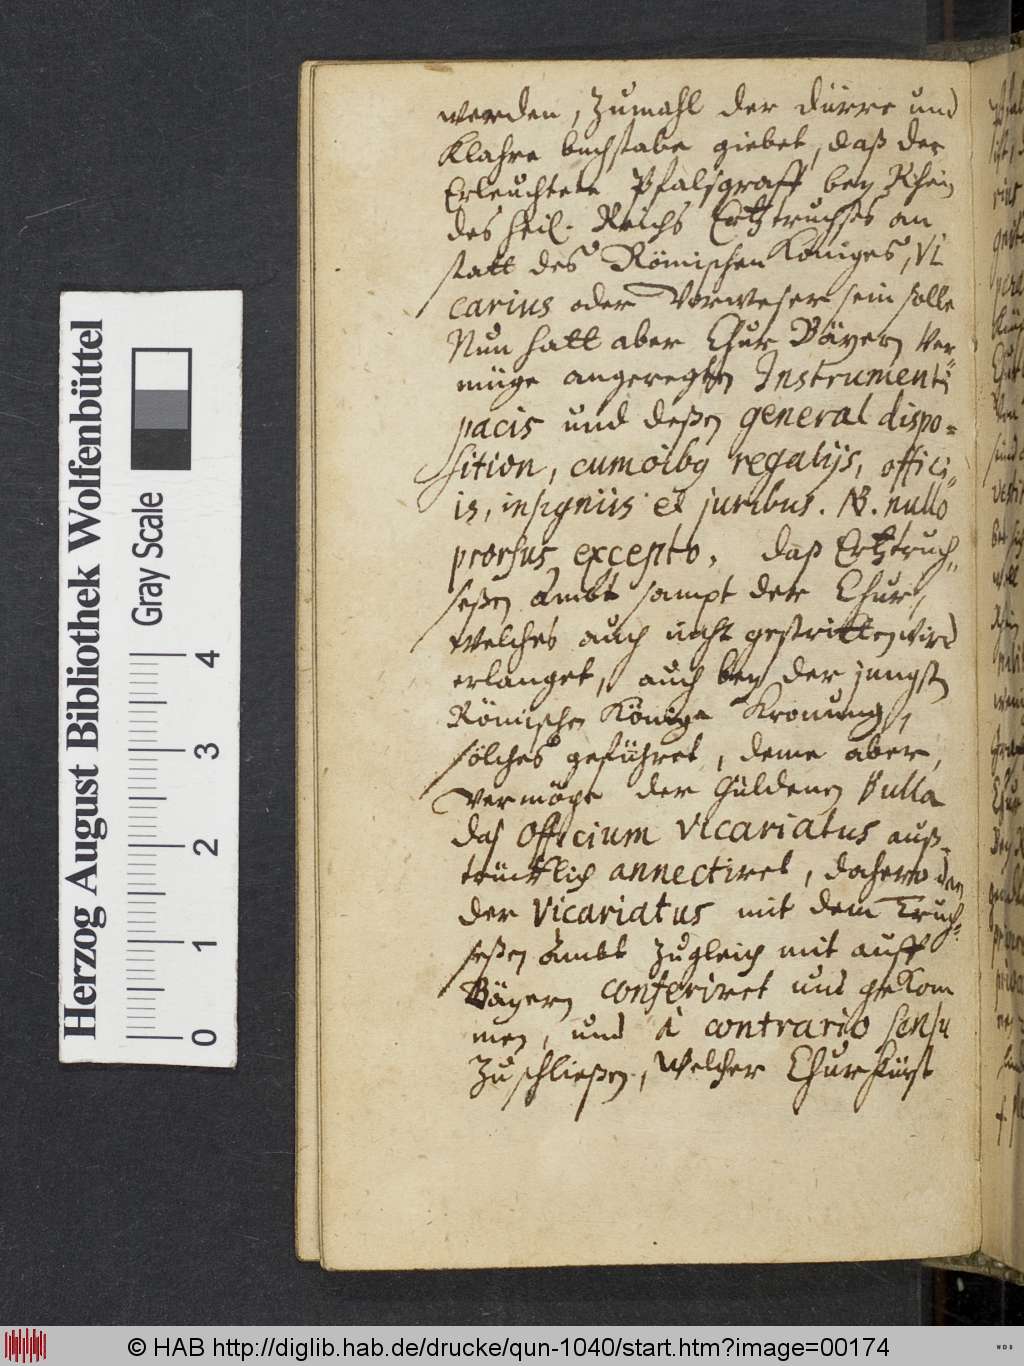 werden, Zumahl der dürre und
Klahre buchstabe giebet, daß der
Erleuchtete Pfalsgraff bey Rhein
des heil. Reichs Ertztruchses an
statt des Römischen Königes, Vi
carius oder Vorweser sein solle
Nun hatt aber Chur Bäyern Ver-
müge angeregten Instrumenti
pacis und deßen general dispo-
sition, cum oibg regalijs, offici-
is, insigniis et juribus. NB. nullo
prorsus excepto, daß Ertztruch-
seßen Ambt sampt der Chur,
welches auch nicht gestritten wird
erlanget, auch bey der jungst
Römischen Könige Kronung,
sölches geführet, deme aber,
Vermöge der Güldenen Bulla
das Officium Vicariatus auß-
trücklich annectiret, dahero
der Vicariatus mit dem Truch-
seßen Ambt zugleich mit auff
Bäyern conferiret und gekom
men, und à contrario sensu
Zuschließen, welcher Churfürst
Herzog August Bibliothek Wolfenbüttel
Gray Scale
0 1 2 3 4
© HAB http://diglib.hab.de/drucke/qun-1040/start.htm?image=00174